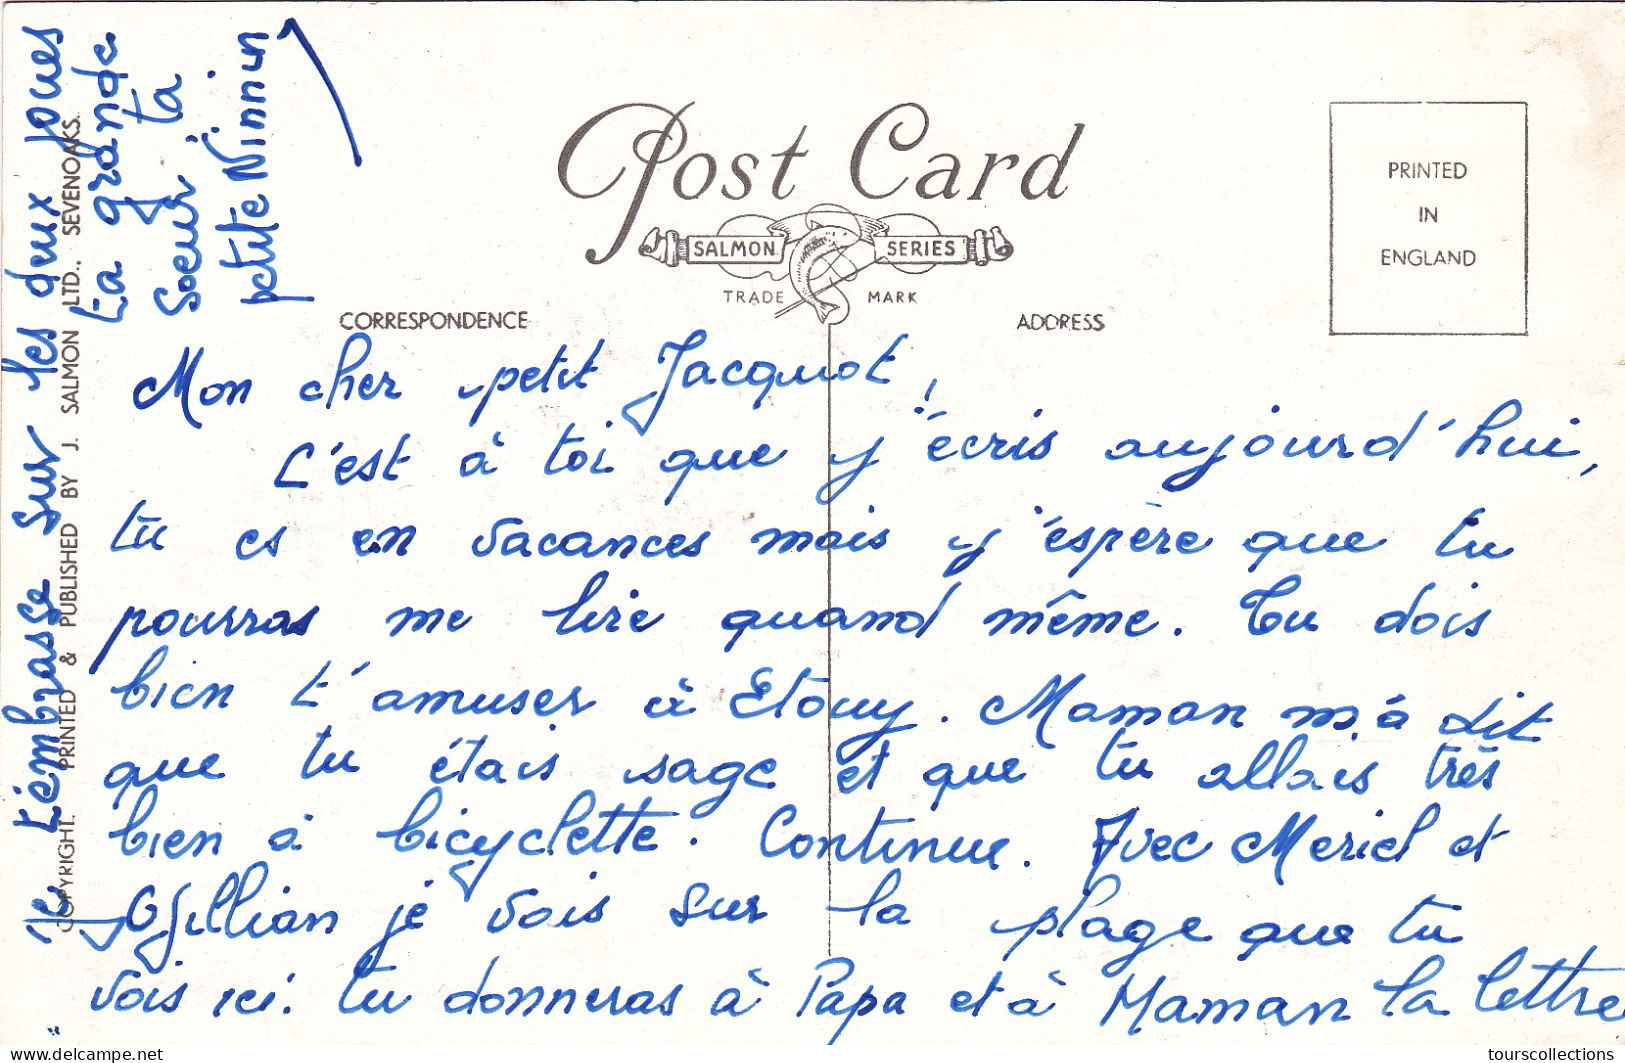 Post Card
SALMON SERIES
TRADE MARK
PRINTED
IN
ENGLAND
CORRESPONDENCE
ADDRESS
Mon cher petit Jacquot,
C'est à toi que j'écris aujourd'hui,
tu es en vacances mais j'espère que tu
pourras me lire quand même. Tu dois
bien t'amuser à Etouy. Maman m'a dit
que tu étais sage et que tu allais très
bien à bicyclette. Continue. Avec Meriel et
Gillian je vais sur la plage que tu
vois ici. tu donneras à Papa et à Maman la lettre
Je t'embrasse sur les deux joues
ta grande
soeur ta
petite Ninnin
COPYRIGHT. PRINTED & PUBLISHED BY J. SALMON LTD., SEVENOAKS.
delcampe.net
tourscollections